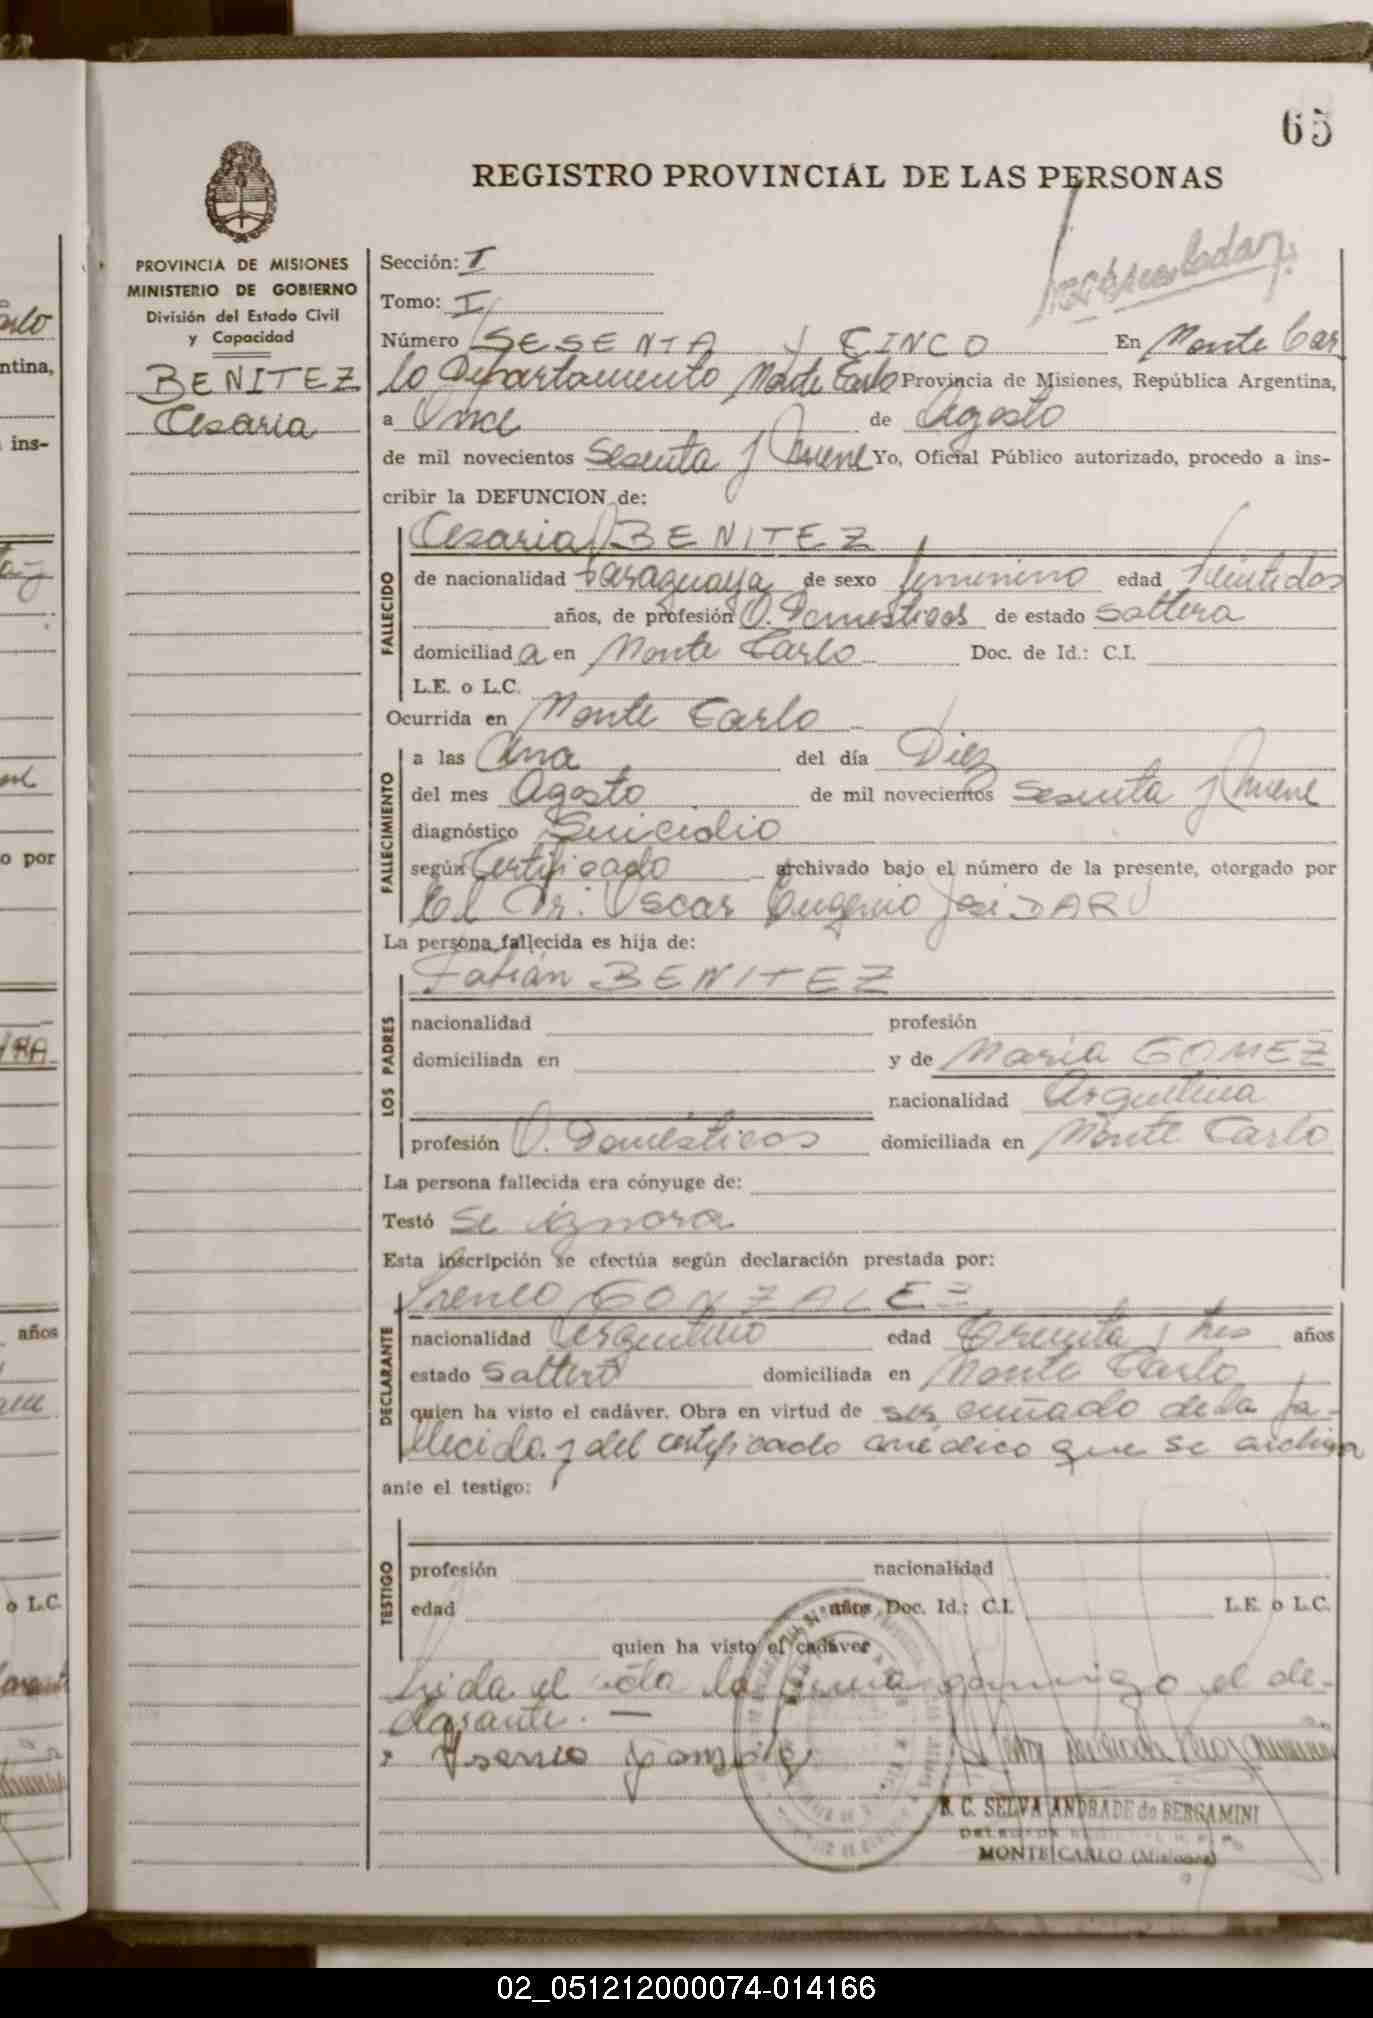 65
REGISTRO PROVINCIAL DE LAS PERSONAS
PROVINCIA DE MISIONES
MINISTERIO DE GOBIERNO
División del Estado Civil
y Capacidad
BENITEZ
Cesaria
Sección: I
Tomo: I
Número SESENTA Y CINCO En Monte Car
lo Departamento Monte Carlo Provincia de Misiones, República Argentina,
a Once de Agosto
de mil novecientos Sesenta y Nueve Yo, Oficial Público autorizado, procedo a ins-
cribir la DEFUNCION de:
FALLECIDO
Cesaria BENITEZ
de nacionalidad Paraguaya de sexo femenino edad Veintidos
años, de profesión Q. Domésticos de estado Soltera
domiciliada en Monte Carlo Doc. de Id.: C.I.
L.E. o L.C.
Ocurrida en Monte Carlo
FALLECIMIENTO
a las Una del día Diez
del mes Agosto de mil novecientos Sesenta y Nueve
diagnóstico Suicidio
según Certificado archivado bajo el número de la presente, otorgado por
El Dr. Oscar Eugenio José DARU
La persona fallecida es hija de:
LOS PADRES
Fabián BENITEZ
nacionalidad profesión
domiciliada en y de María GOMEZ
nacionalidad Argentina
profesión Q. Domésticos domiciliada en Monte Carlo
La persona fallecida era cónyuge de:
Testó Se ignora
Esta inscripción se efectúa según declaración prestada por:
DECLARANTE
Ireneo GONZALEZ
nacionalidad Argentino edad Treinta y tres años
estado Soltero domiciliada en Monte Carlo
quien ha visto el cadáver. Obra en virtud de ser cuñado de la fa-
llecida y del certificado médico que se archiva
ante el testigo:
TESTIGO
profesión nacionalidad
edad años Doc. Id.: C.I. L.E. o L.C.
quien ha visto el cadáver
Leida el acta la firma conmigo el de-
clarante. —
R. C. SELVA ANDRADE de BERGAMINI
MONTE CARLO (Misiones)
ntina,
ins-
o por
años
o L.C.
02_051212000074-014166